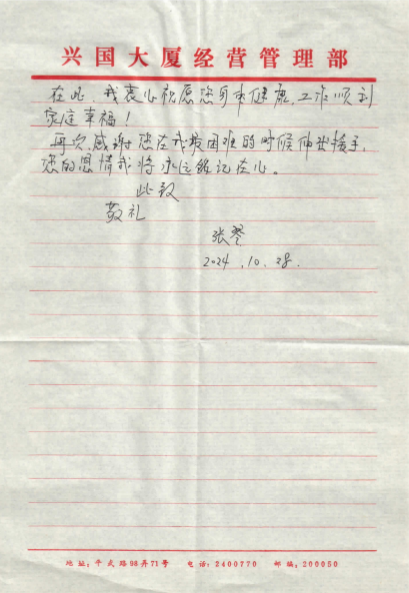 兴国大厦经营管理部
在此，我衷心祝愿您身体健康，工作顺利
家庭幸福！
再次感谢您在我最困难的时候伸出援手，
您的恩情我将永远铭记在心。
此致
敬礼
张琴
2024.10.28.
地址：平武路98弄71号 电话：2400770 邮编：200050